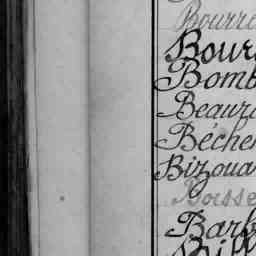 Bourr
Bour
Bomb
Beaur
Béche
Bizoua
Boisse
Barb
Bill